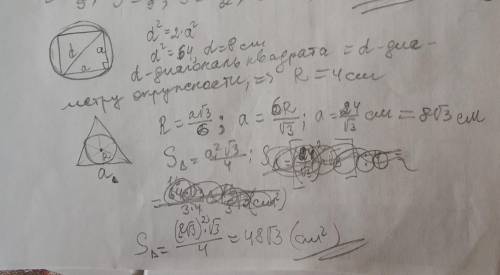 d² = 2·a²
d² = 64, d = 8 см
d a a
d - диагональ квадрата = d - диа-
метру окружности, => R = 4 см
R = a√3/6 ; a = 6R/√3 ; a = 24/√3 см = 8√3 см
S△ = a²√3/4 ;
a△
(см²)
S△ = (8√3)²·√3/4 = 48√3 (см²)